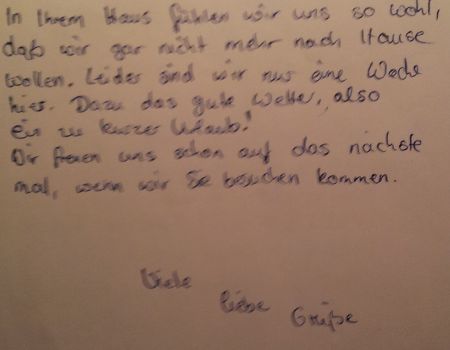 In Ihrem Haus fühlen wir uns so wohl,
daß wir gar nicht mehr nach Hause
wollen. Leider sind wir nur eine Woche
hier. Dazu das gute Wetter, also
ein zu kurzer Urlaub!
Wir freuen uns schon auf das nächste
mal, wenn wir Sie besuchen kommen.
Viele
liebe
Grüße